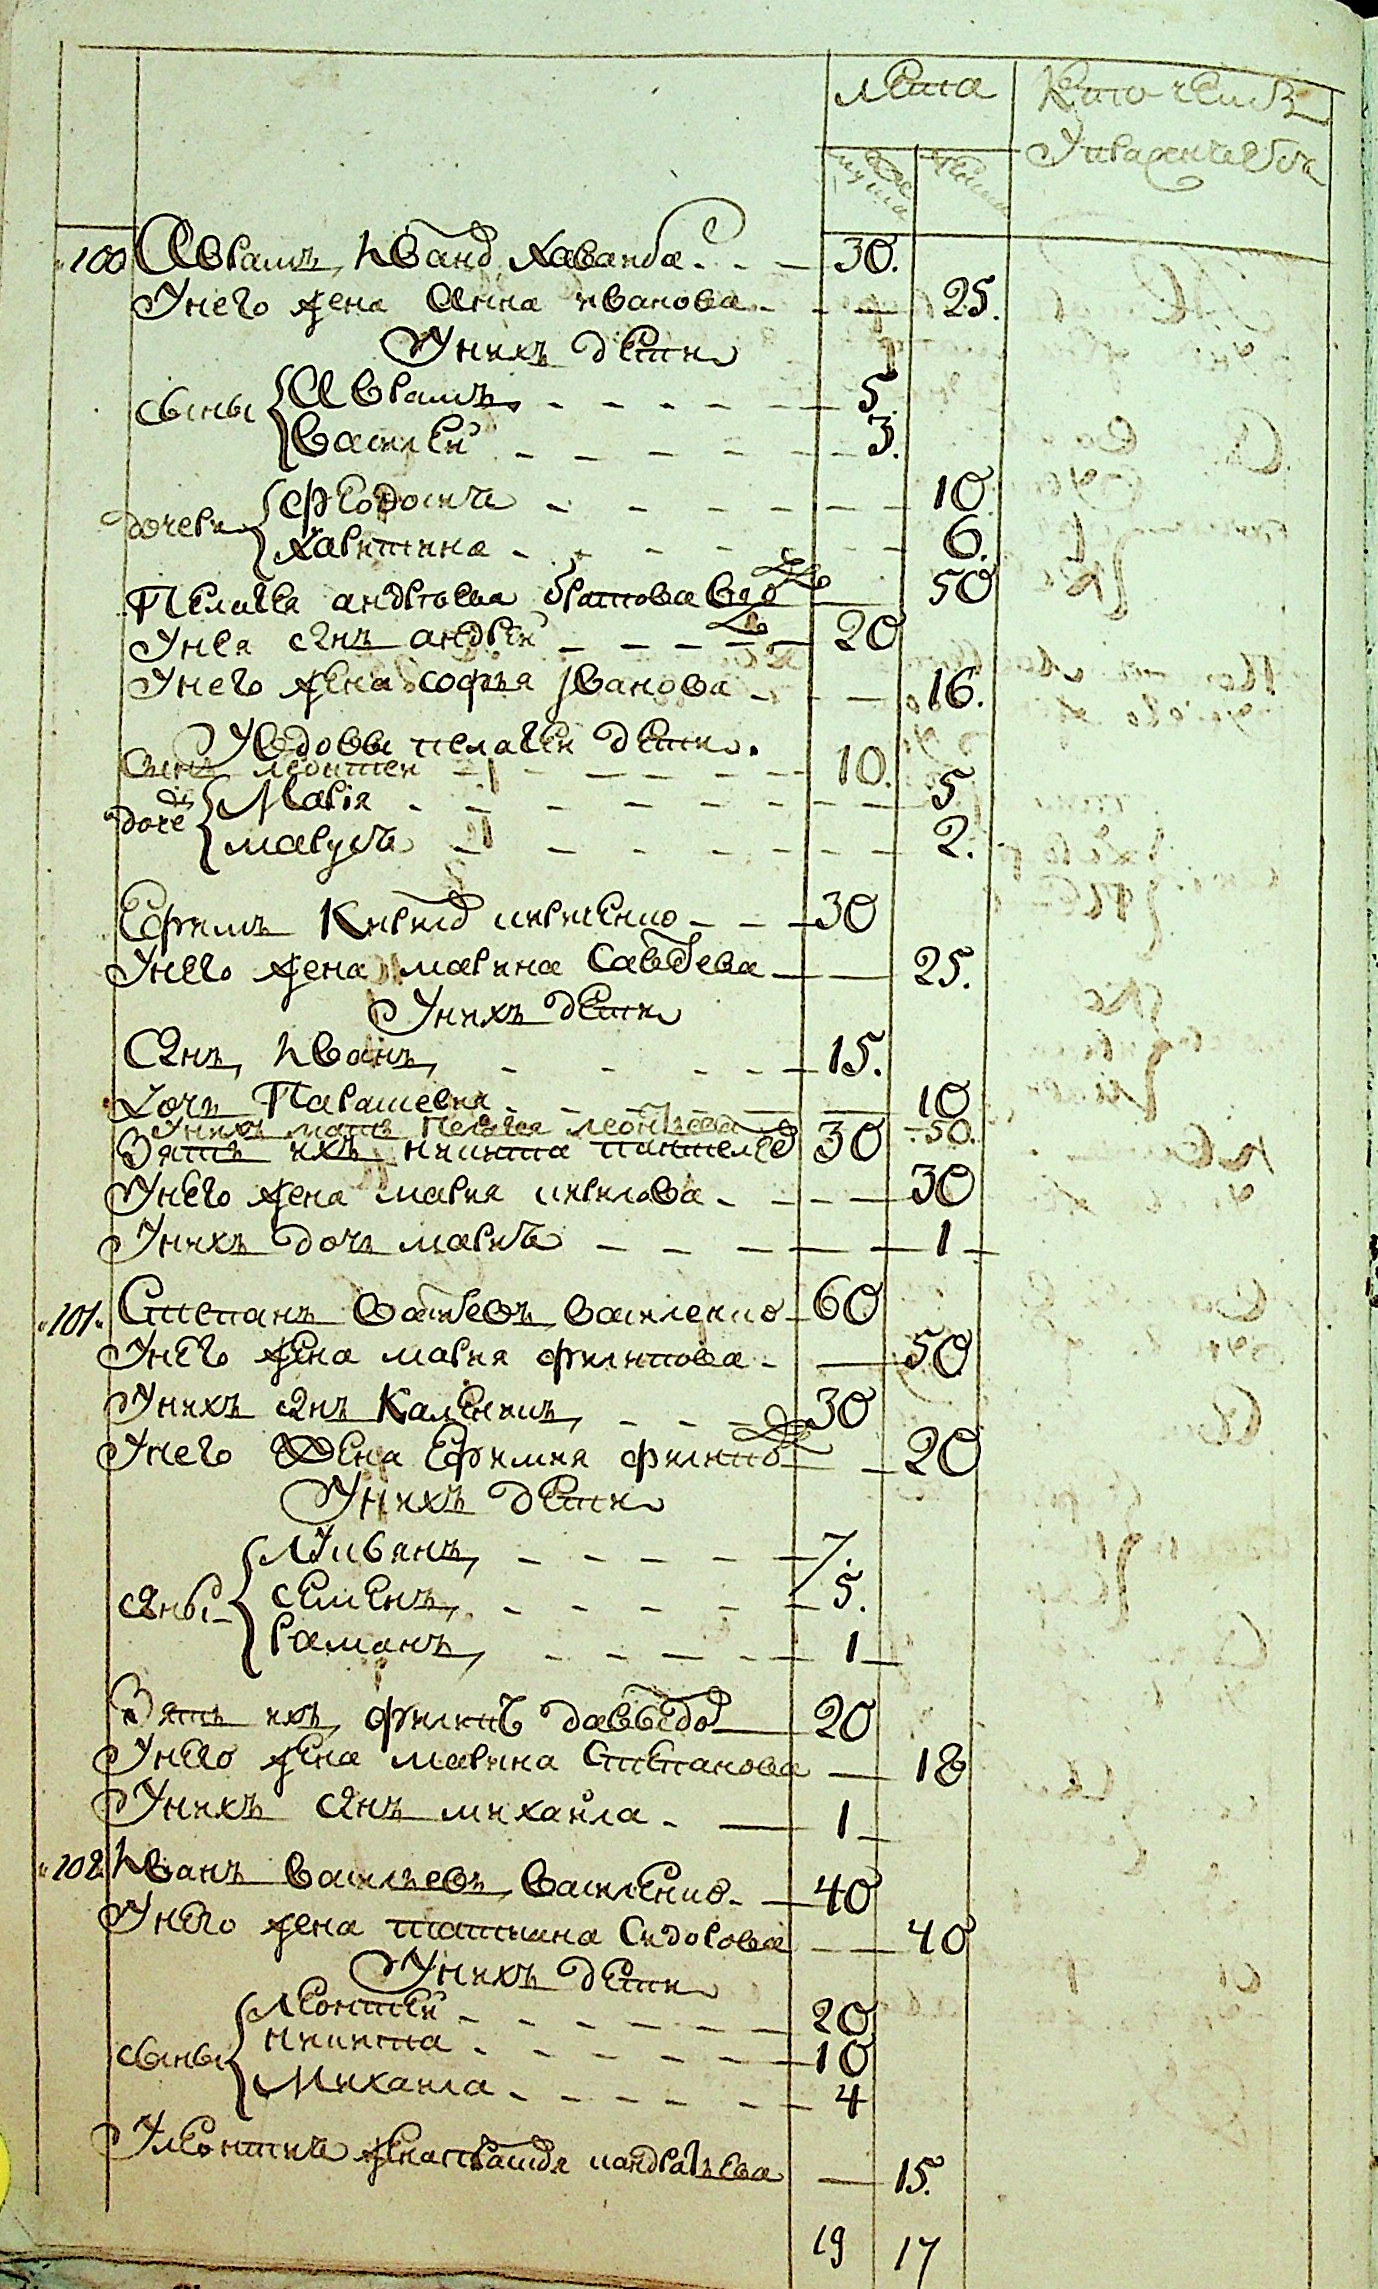 лета
кто чемъ
упражняется
мужеска
женска
100 Аврамъ Иванд Хаванба 30.
У него жена Анна иванова 25.
У нихъ дети
сыны Аврамъ 5.
Василей 3.
дочери Феодосия 10
Харитина 6.
Пелагея андреева братова вдо 50
У нея снъ андрей 20
У него жена софья иванова 16.
У вдовы пелагеи дети.
Сынъ леонтеи 10.
дочери Мария 5
маруся 2.
Ефимъ Кирилд кириченко 30
У него жена марина Савбева 25.
У нихъ дети
Снъ Иванъ 15.
Дочь Парашевия 10
У нихъ мать Пелагея леонтьева 50.
Зять ихъ никита пантелеев 30
У него жена мария кирилова 30
У нихъ дочь мария 1
101. Степанъ васильевъ василенко 60
У него жена мария филипова 50
У нихъ снъ Каленикъ 30
У него жена Ефимия филипо 20
У нихъ дети
сны Лукьянъ 7.
семенъ 5.
раманъ 1
Зять ихъ филипъ давыдо 20
У него жена марина Степанова 18
У нихъ снъ михаила 1
102 Иванъ васильевъ василенко 40
У него жена татиана Сидорова 40
У нихъ дети
сыны Леонтей 20
никита 10
Михаила 4
У леонтия жена кондратьева 15.
19 17